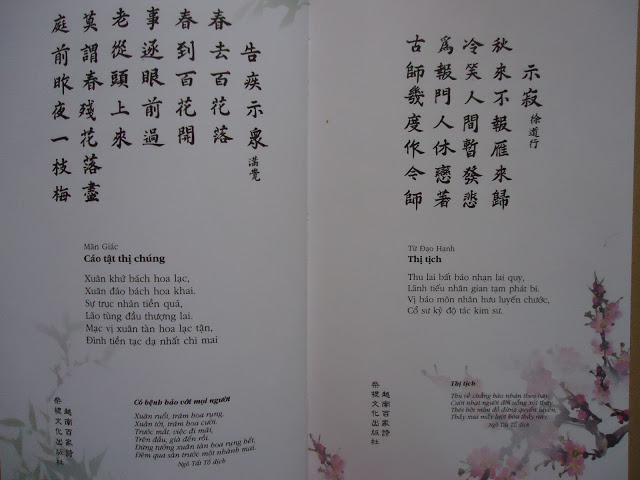 告疾示衆 滿覺
春去百花落
春到百花開
事逐眼前過
老從頭上來
莫謂春殘花落盡
庭前昨夜一枝梅
Mãn Giác
Cáo tật thị chúng
Xuân khứ bách hoa lạc,
Xuân đáo bách hoa khai.
Sự trục nhãn tiền quá,
Lão tùng đầu thượng lai.
Mạc vị xuân tàn hoa lạc tận,
Đình tiền tạc dạ nhất chi mai
Có bệnh bảo với mọi người
Xuân ruổi, trăm hoa rụng,
Xuân tới, trăm hoa cười.
Trước mắt, việc đi mãi,
Trên đầu, già đến rồi.
Đừng tưởng xuân tàn hoa rụng hết,
Đêm qua sân trước một nhành mai.
Ngô Tất Tố dịch
越南百家詩
文化出版社
示寂 徐道行
秋來不報雁來歸
冷笑人間暫發悲
爲報門人休戀著
古師幾度作今師
Từ Đạo Hạnh
Thị tịch
Thu lai bất báo nhạn lai quy,
Lãnh tiếu nhân gian tạm phát bi.
Vị báo môn nhân hưu luyến chước,
Cổ sư kỷ độ tác kim sư.
Thị tịch
Thu về chẳng báo nhạn theo bay,
Cười nhạt người đời uổng xót thay,
Thôi hỡi môn đồ đừng quyến luyến,
Thầy xưa mấy lượt hóa thầy nay.
Ngô Tất Tố dịch
越南百家詩
文化出版社